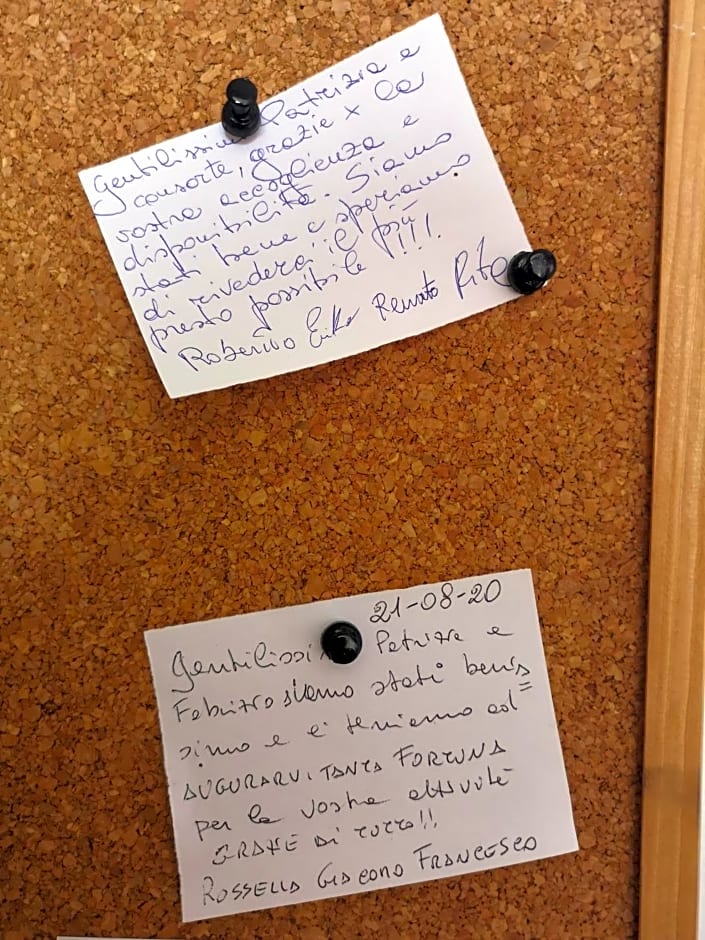 Gentilissimi Patrizia e
consorte, grazie x la
vostra accoglienza e
disponibilità. Siamo
stati bene e speriamo
di rivederci il più
presto possibile !!!
Roberto Erika Renato Rita
21-08-20
Gentilissimi Patrizia e
Fabrizio siamo stati benis
simo e ci teniamo ad
AUGURARVI TANTA FORTUNA
per la vostra attività
GRAZIE di TUTTO!!
ROSSELLA GIACOMO FRANCESCO